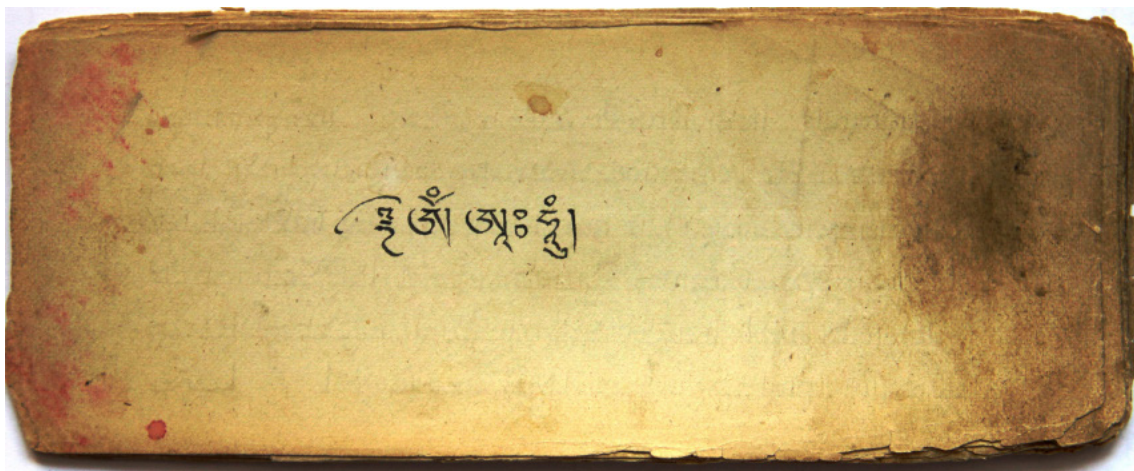 ༄ ཨོཾ ཨཱཿ ཧཱུྃ།